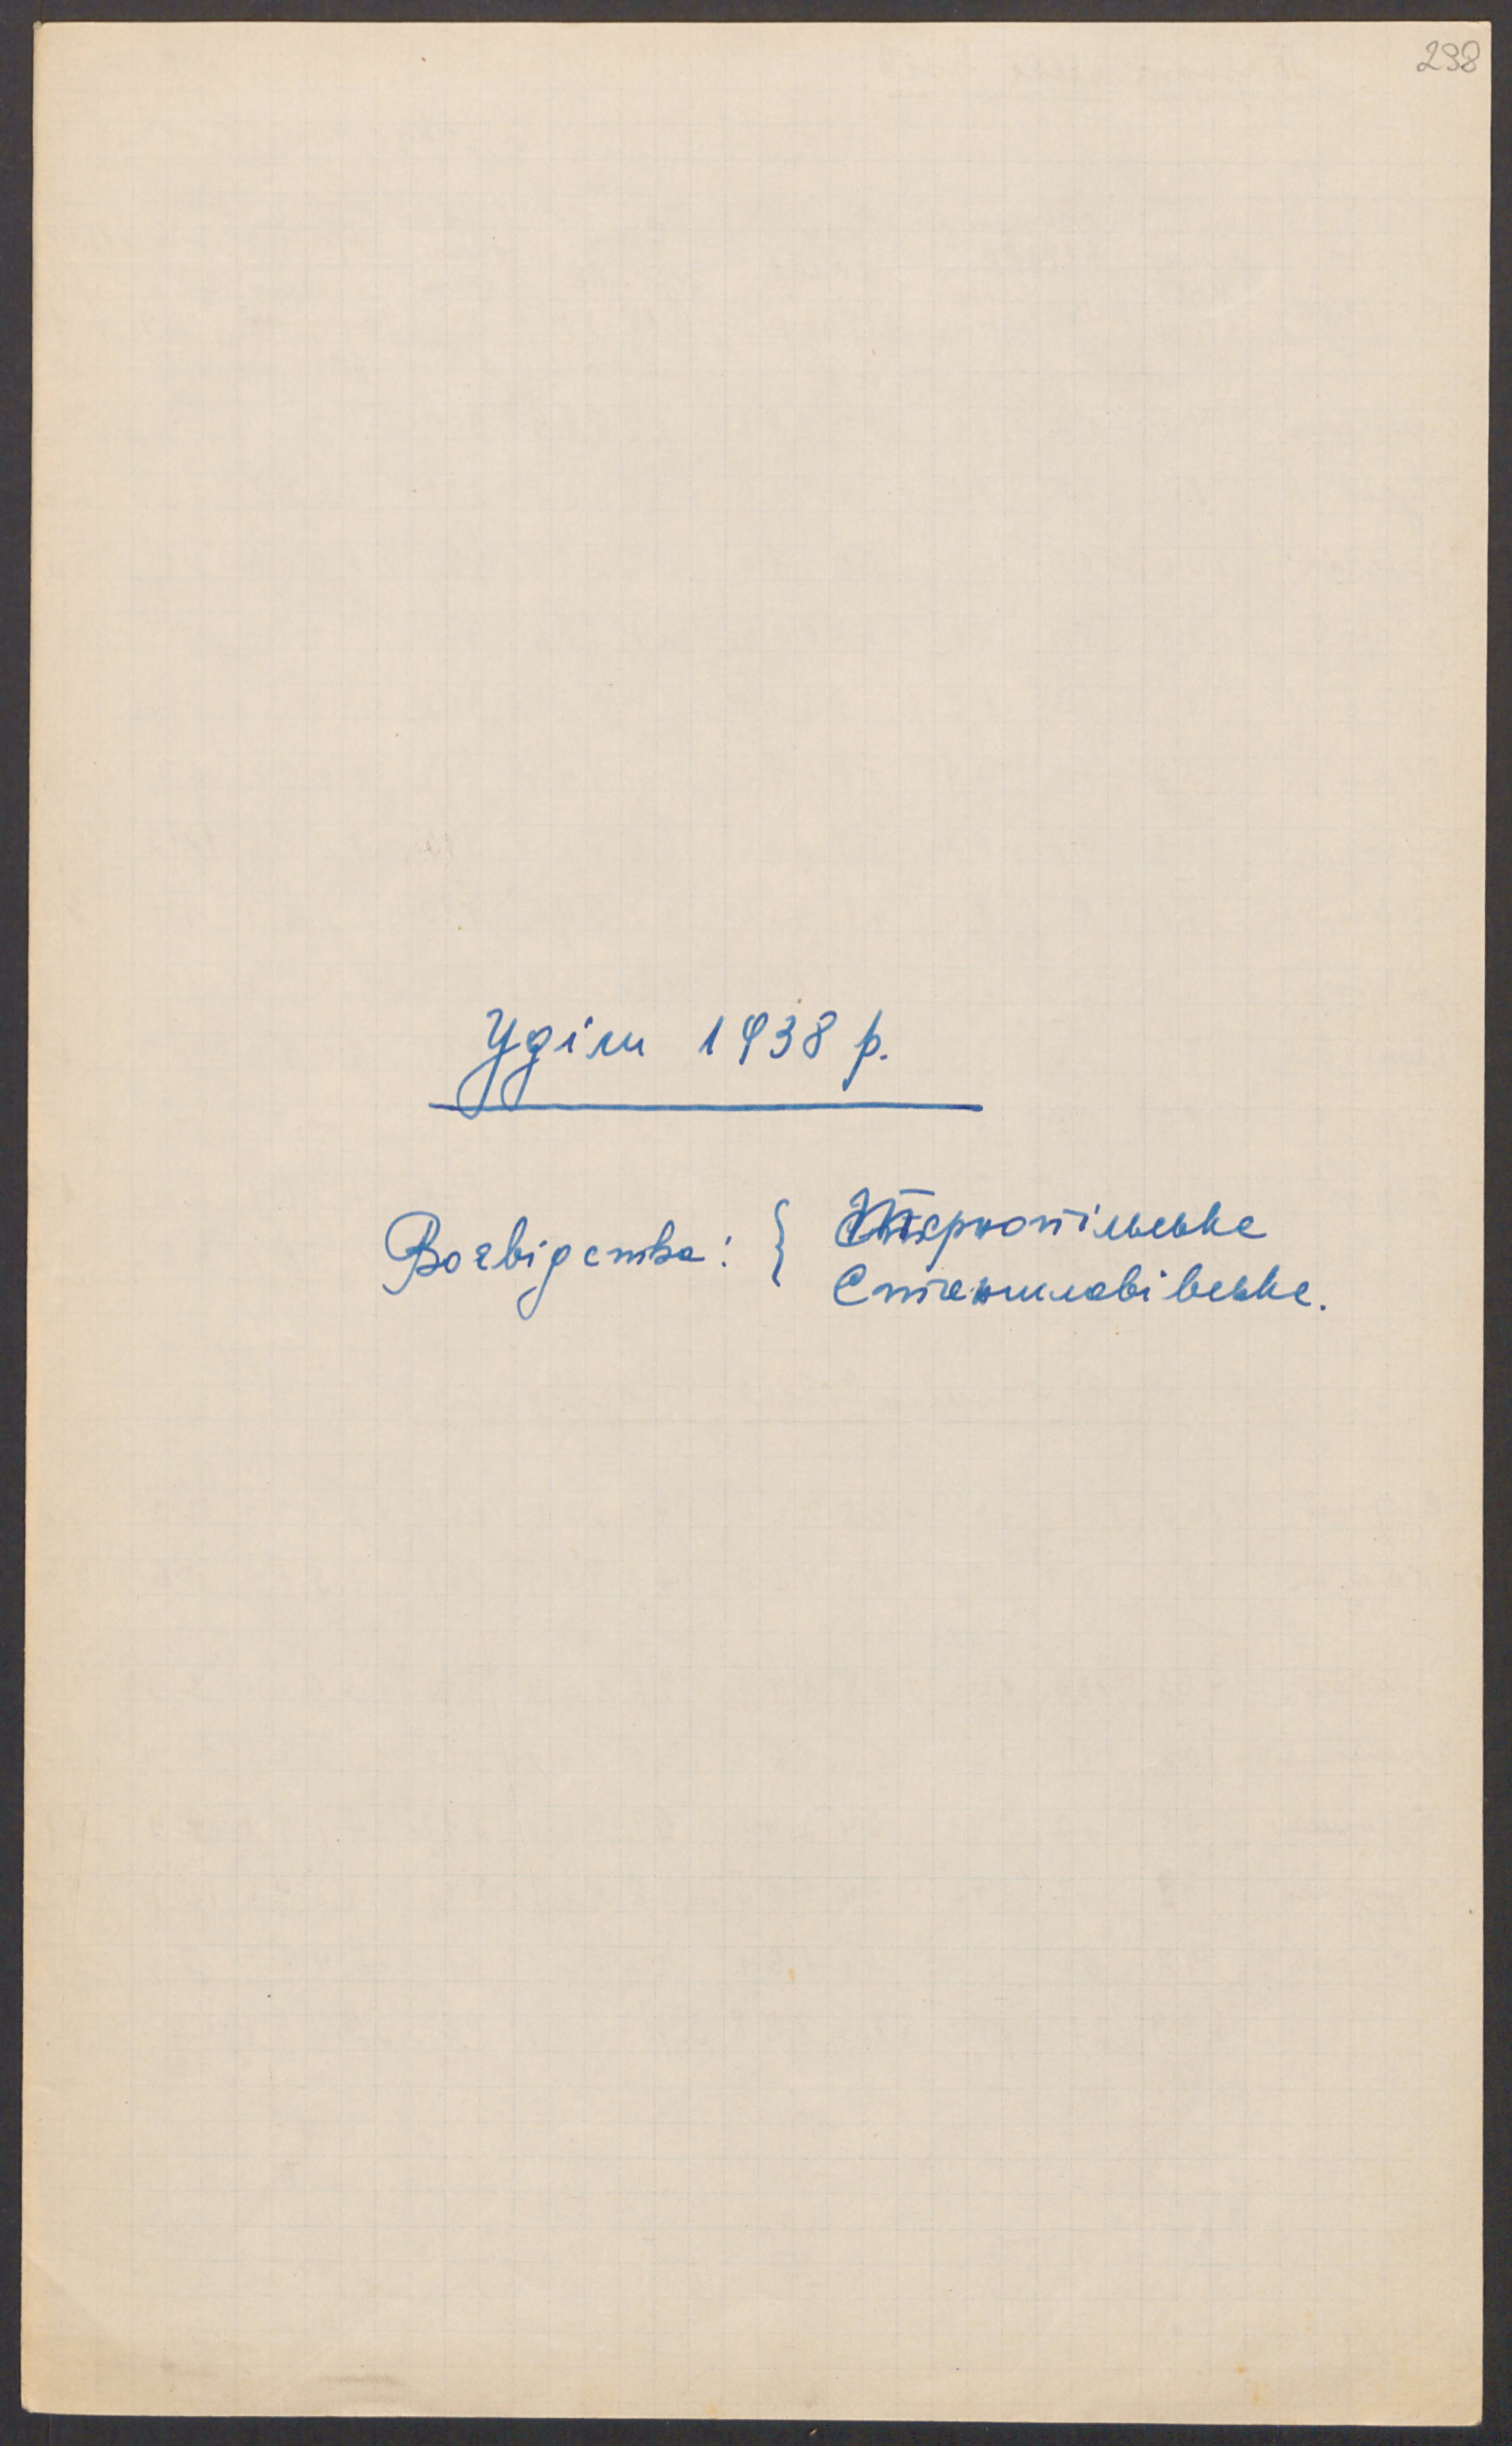 298
Уділи 1938 р.
Воєвідства: { Тернопільське
Станиславівське.